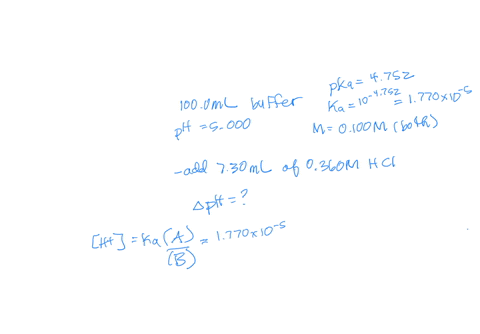 100.0mL buffer
pH = 5.000
pKa = 4.752
Ka = 10^-4.752 = 1.770x10^-5
M = 0.100M (both)
- add 7.30mL of 0.360M HCl
ΔpH = ?
[H+] = Ka (A)/(B) = 1.770x10^-5